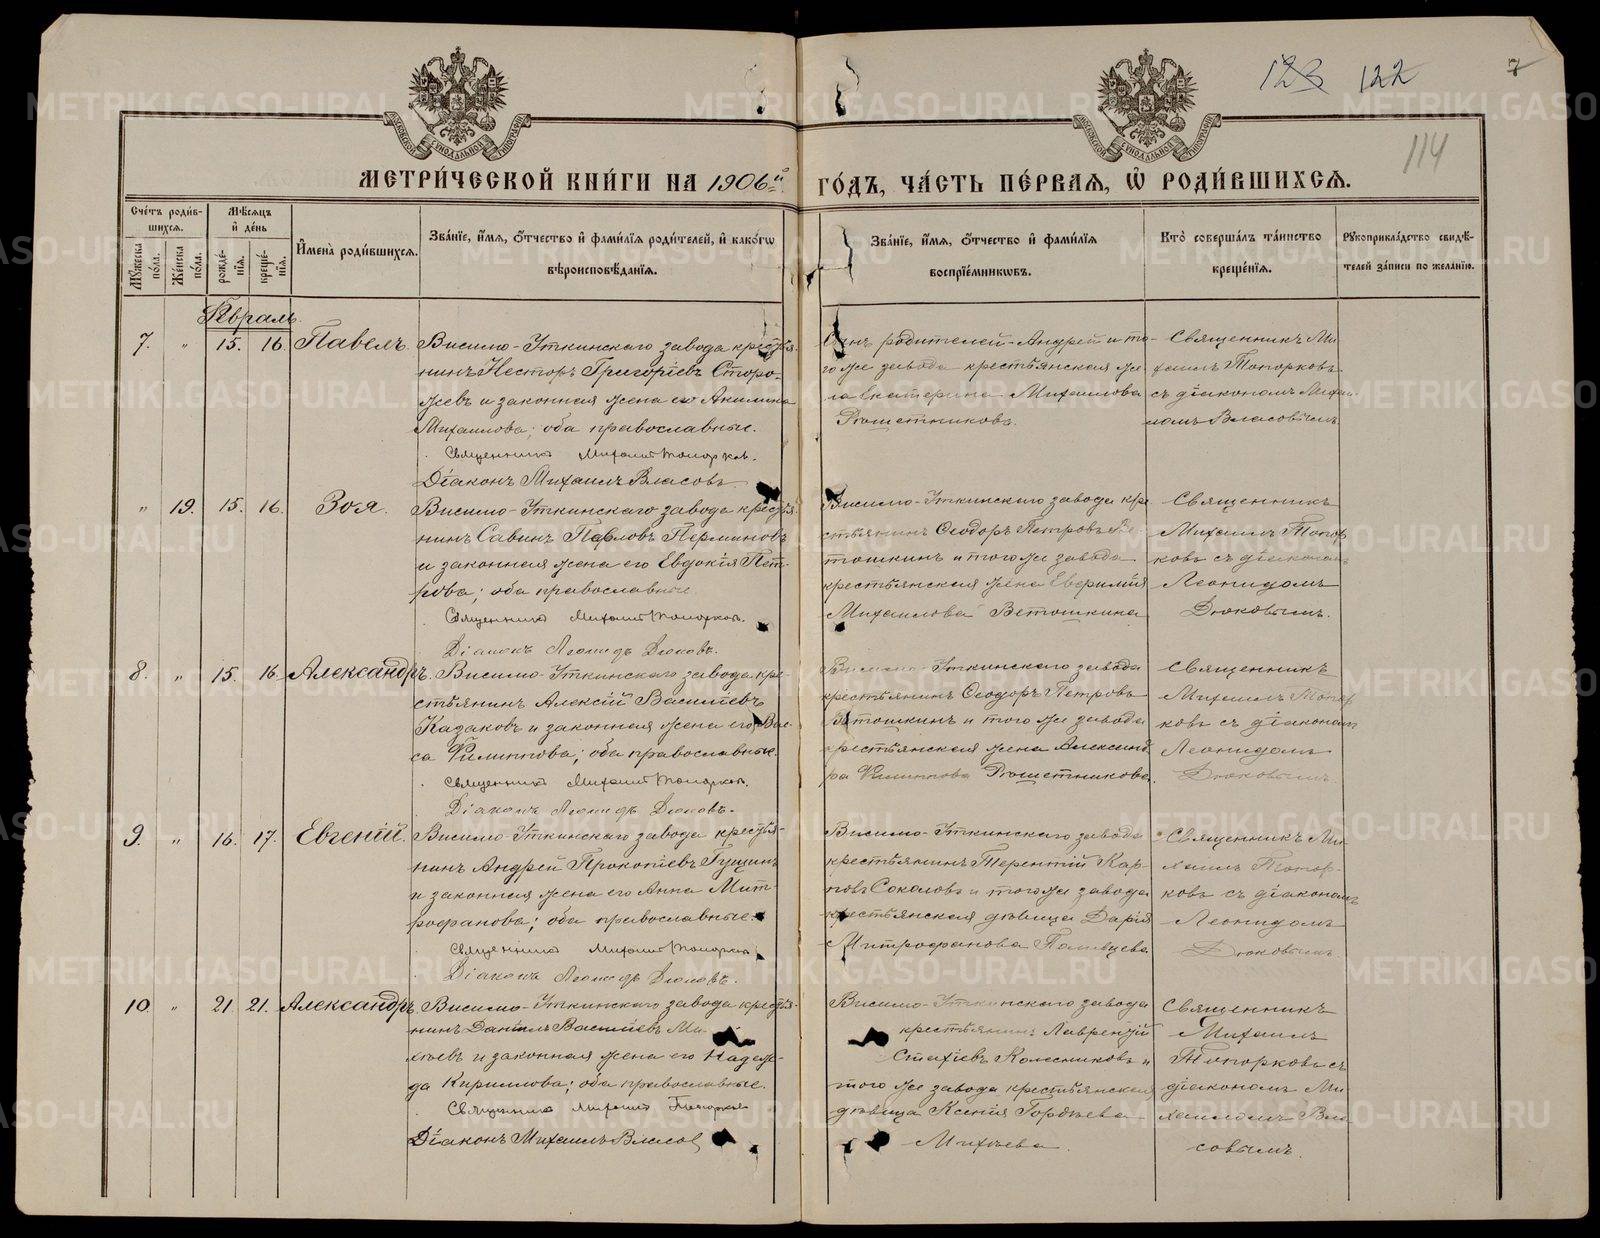 123 122 7
114
МОСКОВСКОЙ СѴНОДАЛЬНОЙ ТИПОГРАФІИ
МОСКОВСКОЙ СѴНОДАЛЬНОЙ ТИПОГРАФІИ
МЕТРИ́ЧЕСКОЙ КНИ́ГИ НА 1906й ГО́ДЪ, ЧА́СТЬ ПЕ́РВАЯ, Ѡ РОДИ́ВШИХСЯ.
Сче́тъ роди́в-
шихся.
Мꙋ́жеска по́ла.
Же́нска по́ла.
Мѣ́сяцъ
и҆ де́нь
рожде́-
нїя.
креще́-
нїя.
И҆мена̀ роди́вшихся.
Зва́нїе, и҆́мя, о҆́тчество и҆ фами́лїя роди́телей, и҆ како́гѡ
вѣроисповѣ́данїя.
Зва́нїе, и҆́мя, о҆́тчество и҆ фами́лїя
воспрїе́мникѡвъ.
Кто̀ соверша́лъ та́инство
креще́нїя.
Рꙋкоприкла́дство свидѣ́-
телей за́писи по жела́нїю.
Февраль.
7. " 15. 16. Павелъ.
Висимо-Уткинскаго завода крестья-
нинъ Несторъ Григоріевъ Сторо-
жевъ и законная жена его Акилина
Михаилова; оба православные.
Священникъ Михаилъ Топорковъ.
Діаконъ Михаилъ Власовъ.
Сынъ родителей-Андрей и то-
го же завода крестьянская же-
на Екатерина Михаилова
Рѣшетникова.
Священникъ Ми-
хаилъ Топорковъ
съ діакономъ Михаи-
ломъ Власовымъ.
" 19. 15. 16. Зоя.
Висимо-Уткинскаго завода крестья-
нинъ Савинъ Павловъ Перминовъ
и законная жена его Евдокія Пет-
рова; оба православные.
Священникъ Михаилъ Топорковъ.
Діаконъ Леонидъ Дюковъ.
Висимо-Уткинскаго завода кре-
стьянинъ Ѳеодоръ Петровъ Ве-
тошкинъ и того же завода
крестьянская жена Евфимія
Михаилова Ветошкина
Священникъ
Михаилъ Топор-
ковъ съ діакономъ
Леонидомъ
Дюковымъ.
8. " 15. 16. Александръ.
Висимо-Уткинскаго завода кре-
стьянинъ Алексій Василіевъ
Казаковъ и законная жена его Вас-
са Филиппова; оба православные.
Священникъ Михаилъ Топорковъ.
Діаконъ Леонидъ Дюковъ.
Висимо-Уткинскаго завода
крестьянинъ Ѳеодоръ Петровъ
Ветошкинъ и того же завода
крестьянская жена Александ-
ра Филиппова Рѣшетникова.
Священникъ
Михаилъ Топор-
ковъ съ діакономъ
Леонидомъ
Дюковымъ.
9. " 16. 17. Евгеній.
Висимо-Уткинскаго завода крестья-
нинъ Андрей Прокопіевъ Гущинъ
и законная жена его Анна Мит-
рофанова; оба православные.
Священникъ Михаилъ Топорковъ
Діаконъ Леонидъ Дюковъ.
Висимо-Уткинскаго завода
крестьянинъ Терентій Кар-
повъ Соколовъ и того же завода
крестьянская дѣвица Дарія
Митрофанова
Священникъ Ми-
хаилъ Топор-
ковъ съ діакономъ
Леонидомъ
Дюковымъ.
10. " 21. 21. Александръ.
Висимо-Уткинскаго завода крестья-
нинъ Даніилъ Василіевъ Ми-
хѣевъ и законная жена его Надеж-
да Кириллова; оба православные.
Священникъ Михаилъ Топорковъ
Діаконъ Михаилъ Власовъ
Висимо-Уткинскаго завода
крестьянинъ Лаврентій
Стахіевъ Колесниковъ и
того же завода крестьянская
дѣвица Ксенія Гордѣева
Михѣева.
Священникъ
Михаилъ
Топорковъ съ
діакономъ Ми-
хаиломъ Вла-
совымъ.
METRIKI.GASO-URAL.RU